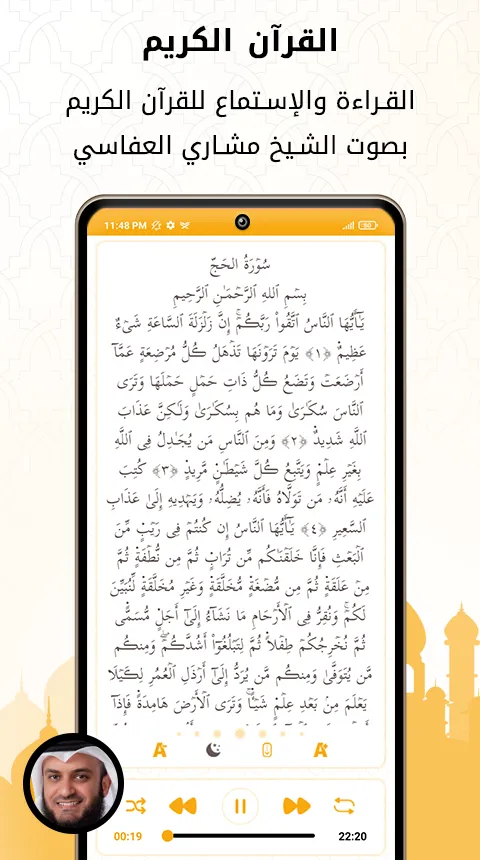 القرآن الكريم
القراءة والإستماع للقرآن الكريم
بصوت الشيخ مشاري العفاسي
11:48 PM
60
سُورَةُ الحَجِّ
بِسْمِ اللهِ الرَّحْمَـٰنِ الرَّحِيمِ
يَـٰٓأَيُّهَا النَّاسُ اتَّقُوا۟ رَبَّكُمْۚ إِنَّ زَلْزَلَةَ السَّاعَةِ شَىْءٌ
عَظِيمٌ ﴿١﴾ يَوْمَ تَرَوْنَهَا تَذْهَلُ كُلُّ مُرْضِعَةٍ عَمَّآ
أَرْضَعَتْ وَتَضَعُ كُلُّ ذَاتِ حَمْلٍ حَمْلَهَا وَتَرَى
النَّاسَ سُكَـٰرَىٰ وَمَا هُم بِسُكَـٰرَىٰ وَلَـٰكِنَّ عَذَابَ
اللَّهِ شَدِيدٌ ﴿٢﴾ وَمِنَ النَّاسِ مَن يُجَـٰدِلُ فِى اللَّهِ
بِغَيْرِ عِلْمٍ وَيَتَّبِعُ كُلَّ شَيْطَـٰنٍ مَّرِيدٍ ﴿٣﴾ كُتِبَ
عَلَيْهِ أَنَّهُۥ مَن تَوَلَّاهُ فَأَنَّهُۥ يُضِلُّهُۥ وَيَهْدِيهِ إِلَىٰ عَذَابِ
السَّعِيرِ ﴿٤﴾ يَـٰٓأَيُّهَا النَّاسُ إِن كُنتُمْ فِى رَيْبٍ مِّنَ
الْبَعْثِ فَإِنَّا خَلَقْنَـٰكُم مِّن تُرَابٍ ثُمَّ مِن نُّطْفَةٍ ثُمَّ
مِنْ عَلَقَةٍ ثُمَّ مِن مُّضْغَةٍ مُّخَلَّقَةٍ وَغَيْرِ مُخَلَّقَةٍ لِّنُبَيِّنَ
لَكُمْۚ وَنُقِرُّ فِى الْأَرْحَامِ مَا نَشَآءُ إِلَىٰٓ أَجَلٍ مُّسَمًّى
ثُمَّ نُخْرِجُكُمْ طِفْلًا ثُمَّ لِتَبْلُغُوٓا۟ أَشُدَّكُمْۖ وَمِنكُم
مَّن يُتَوَفَّىٰ وَمِنكُم مَّن يُرَدُّ إِلَىٰٓ أَرْذَلِ الْعُمُرِ لِكَيْلَا
يَعْلَمَ مِنۢ بَعْدِ عِلْمٍ شَيْـًٔاۚ وَتَرَى الْأَرْضَ هَامِدَةً فَإِذَآ
A- A+
00:19 22:20